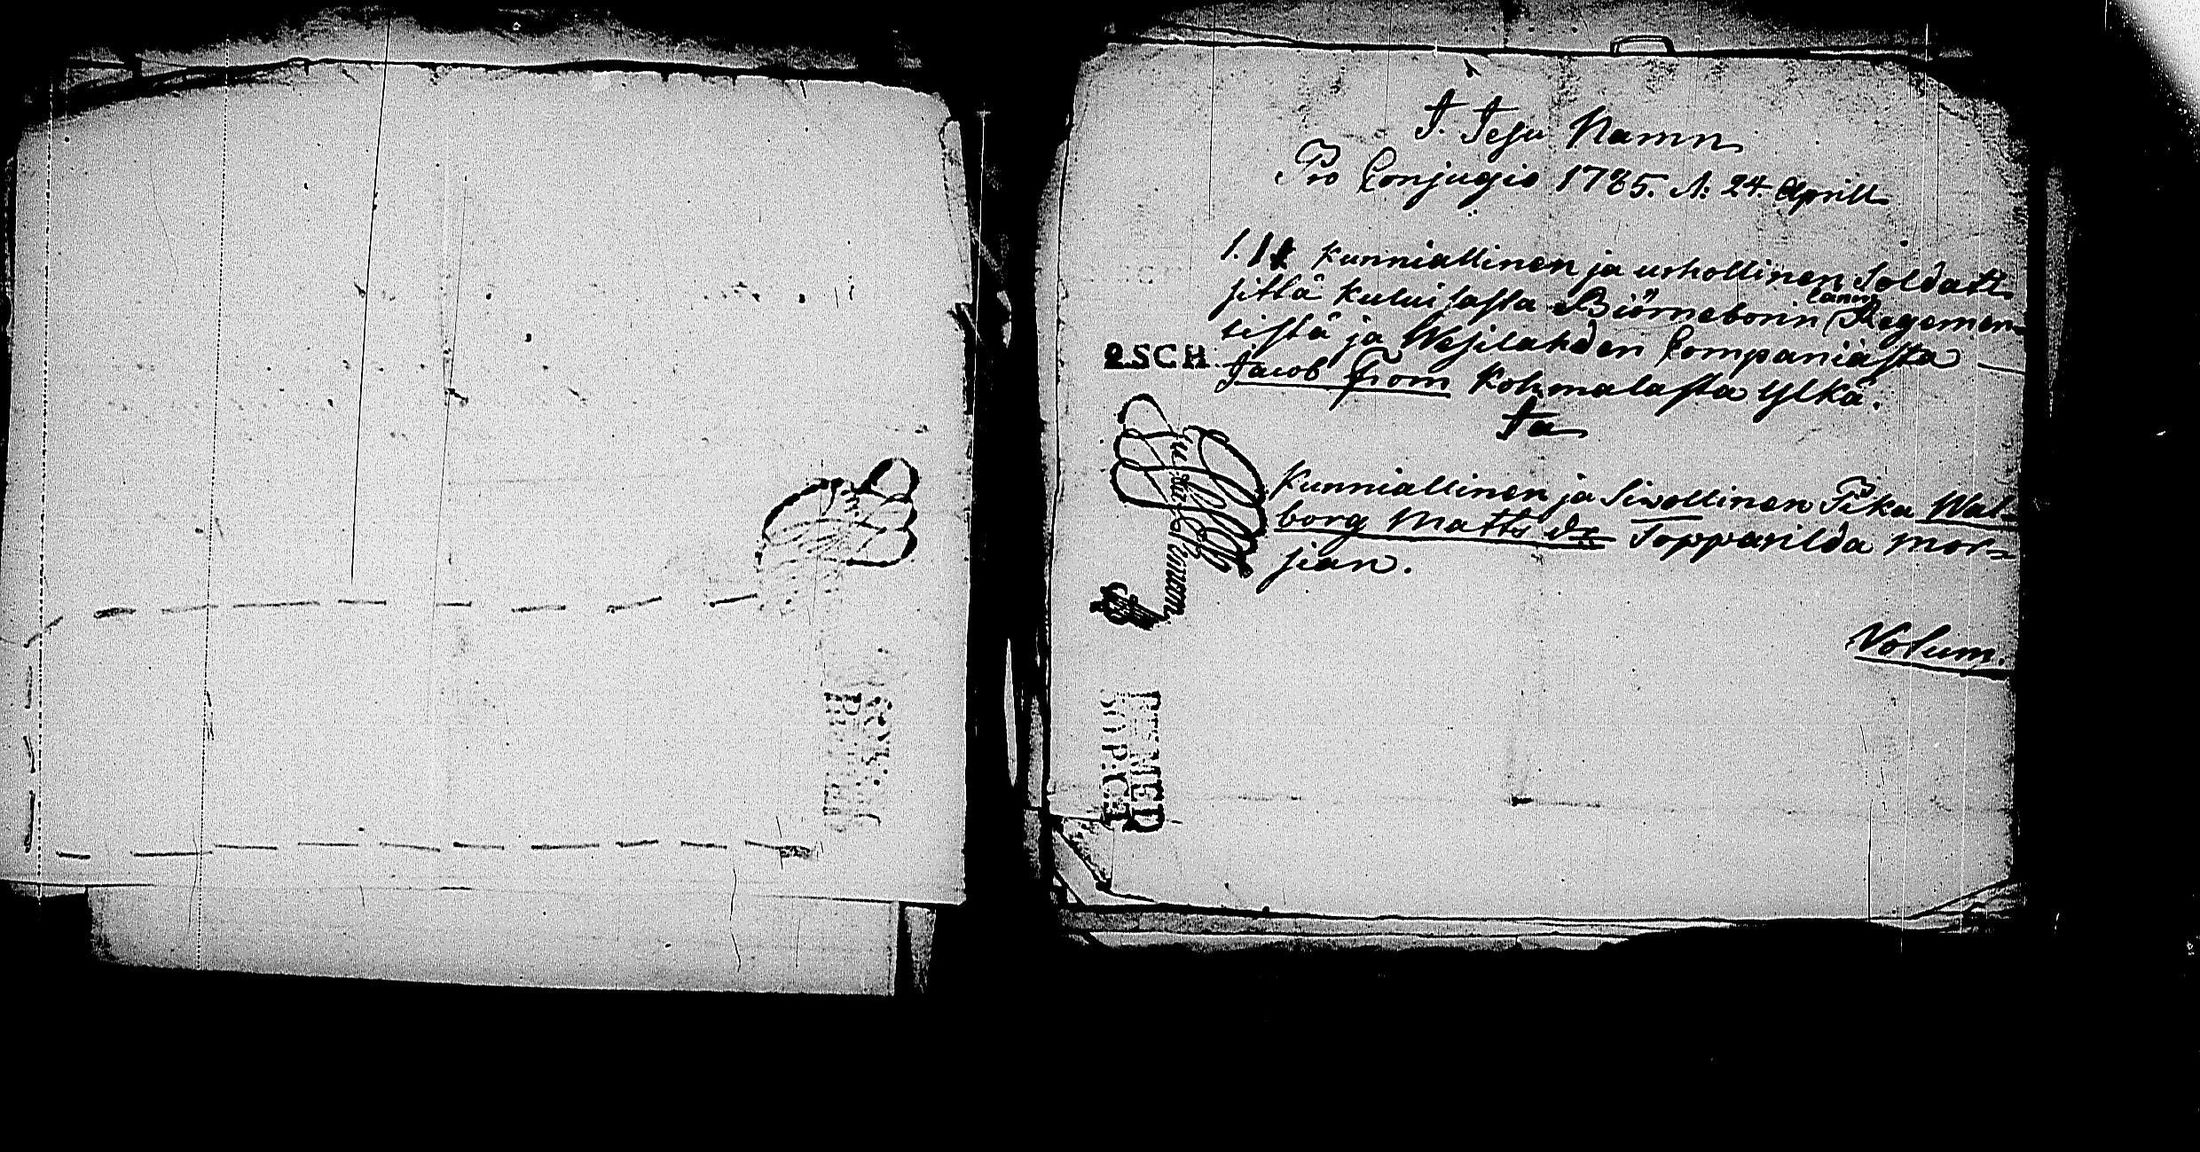 J. Jesu Namn
Pro Conjugio 1785. d. 24. Aprill
1. kunniallinen ja urhollinen Soldati
sittä kuluisasta Biörneborin länin Regemen-
tistä ja Wesilahden Companiasta
2 SCH
Jacob From Kohmalasta Ylkä.
Ja
Kunniallinen ja Siwollinen Pika Wal-
borg Matts dr Topparilda mor-
sian.
Votum.